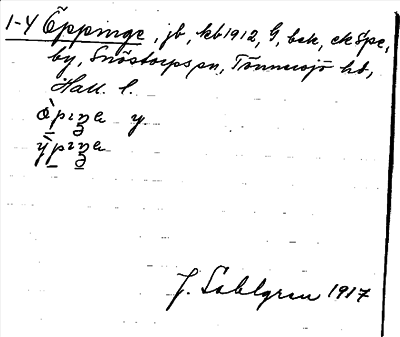 1-4 Öppinge, jb, kb 1912, G, bsk, ek Spe,
by, Snöstorps sn, Tönnersjö hd,
Hall. l.
y.
J. Sahlgren 1917